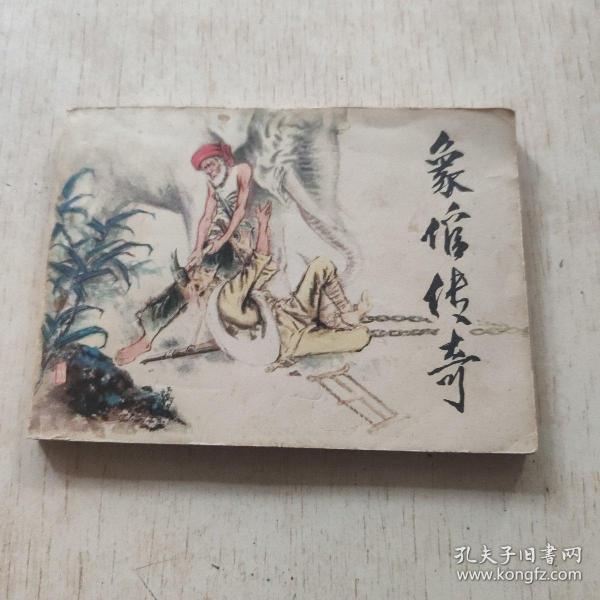 象倌传奇
孔夫子旧书网
www.kongfz.com